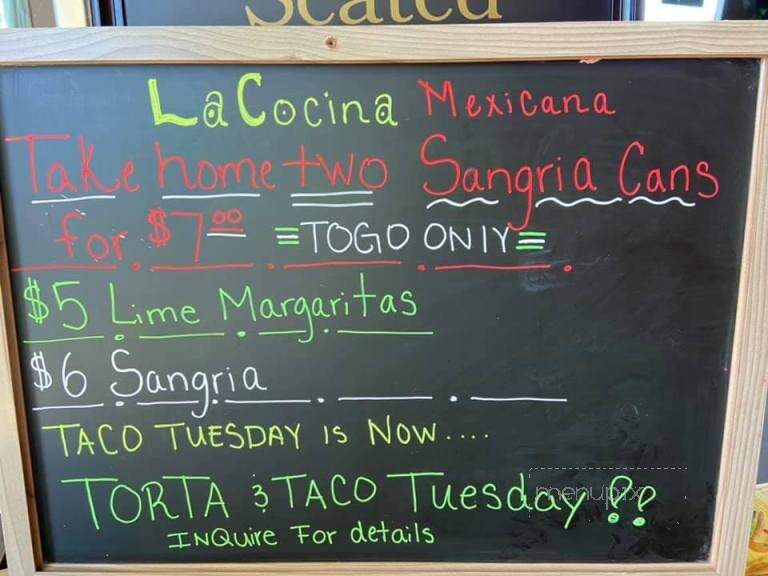 Seated
La Cocina Mexicana
Take home two Sangria Cans
for $7.00 TOGO ONLY
$5 Lime Margaritas
$6 Sangria
TACO TUESDAY is NOW....
TORTA & TACO Tuesday !?
INQuire For details
menupix